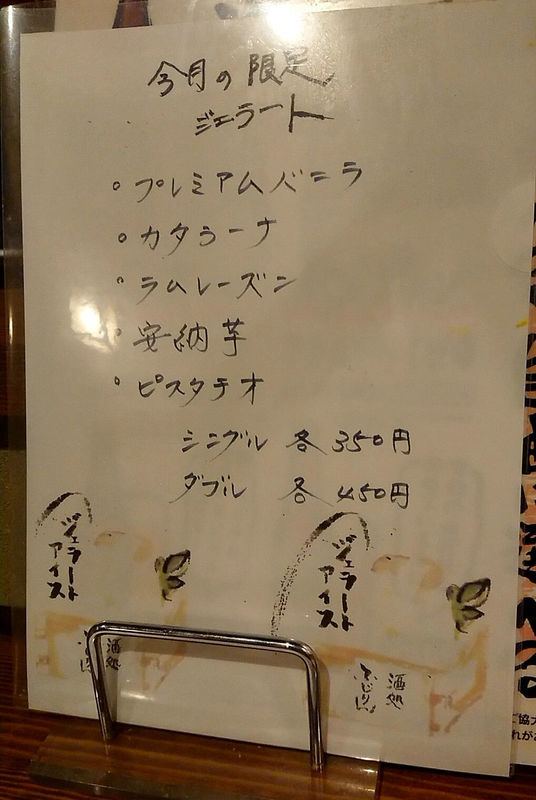 今月の限定
ジェラート
・プレミアムバニラ
・カタラーナ
・ラムレーズン
・安納芋
・ピスタチオ
シングル 各350円
ダブル 各450円
ジェラート
アイス
酒処
ジェラート
アイス
酒処
ご協力